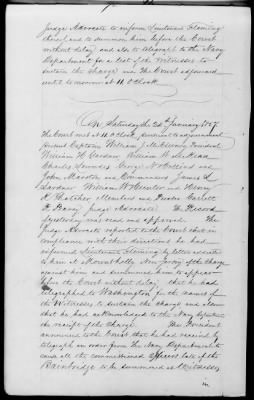 Judge Advocate to inform Lieutenant Fleming
thereof and to summon him before the Court
without delay, and also to telegraph to the Navy
Department for a list of the Witnesses to
sustain the charge and the Court adjourned
until tomorrow at 11 O'Clock.
On Saturday the 24th January 1857
The Court met at 11 O'Clock, pursuant to adjournment
present Captains William J. McCluney President
William H. Gardner William W. McKean
Charles Lowndes George A.
John Marston and Commanders James L.
Lardner William W. Hunter and Henry
K. Thatcher Members and
Judge Advocate. The Record
of yesterday was read and approved. The
Judge Advocate reported to the Court that in
compliance with their directions he had
informed Lieutenant Fleming by letter addressed
to him at Mount Holly New Jersey of the charge
against him and summoned him to appear
before the Court without delay, that he had
telegraphed to Washington for the names of
the Witnesses to sustain the charge and also
that he had acknowledged to the Navy Department
the receipt of the Charge. The President
announced to the Court that he had received by
telegraph an order from the Navy Department to
cause all the commissioned Officers late of the
Bainbridge to be summoned as Witnesses